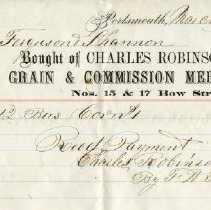 Portsmouth,
Ferguson Shannon
Bought of CHARLES ROBINS
GRAIN & COMMISSION MER
Nos. 15 & 17 Bow Str
12 Bus Corn
Recd Payment
Charles Robinson
By F A